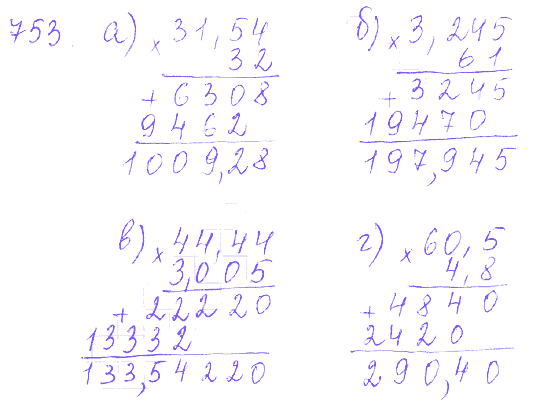 753 а) × 31,54
32
+ 6308
9462
1009,28
б) × 3,245
61
+ 3245
19470
197,945
в) × 44,44
3,005
+ 22220
13332
133,54220
г) × 60,5
4,8
+ 4840
2420
290,40